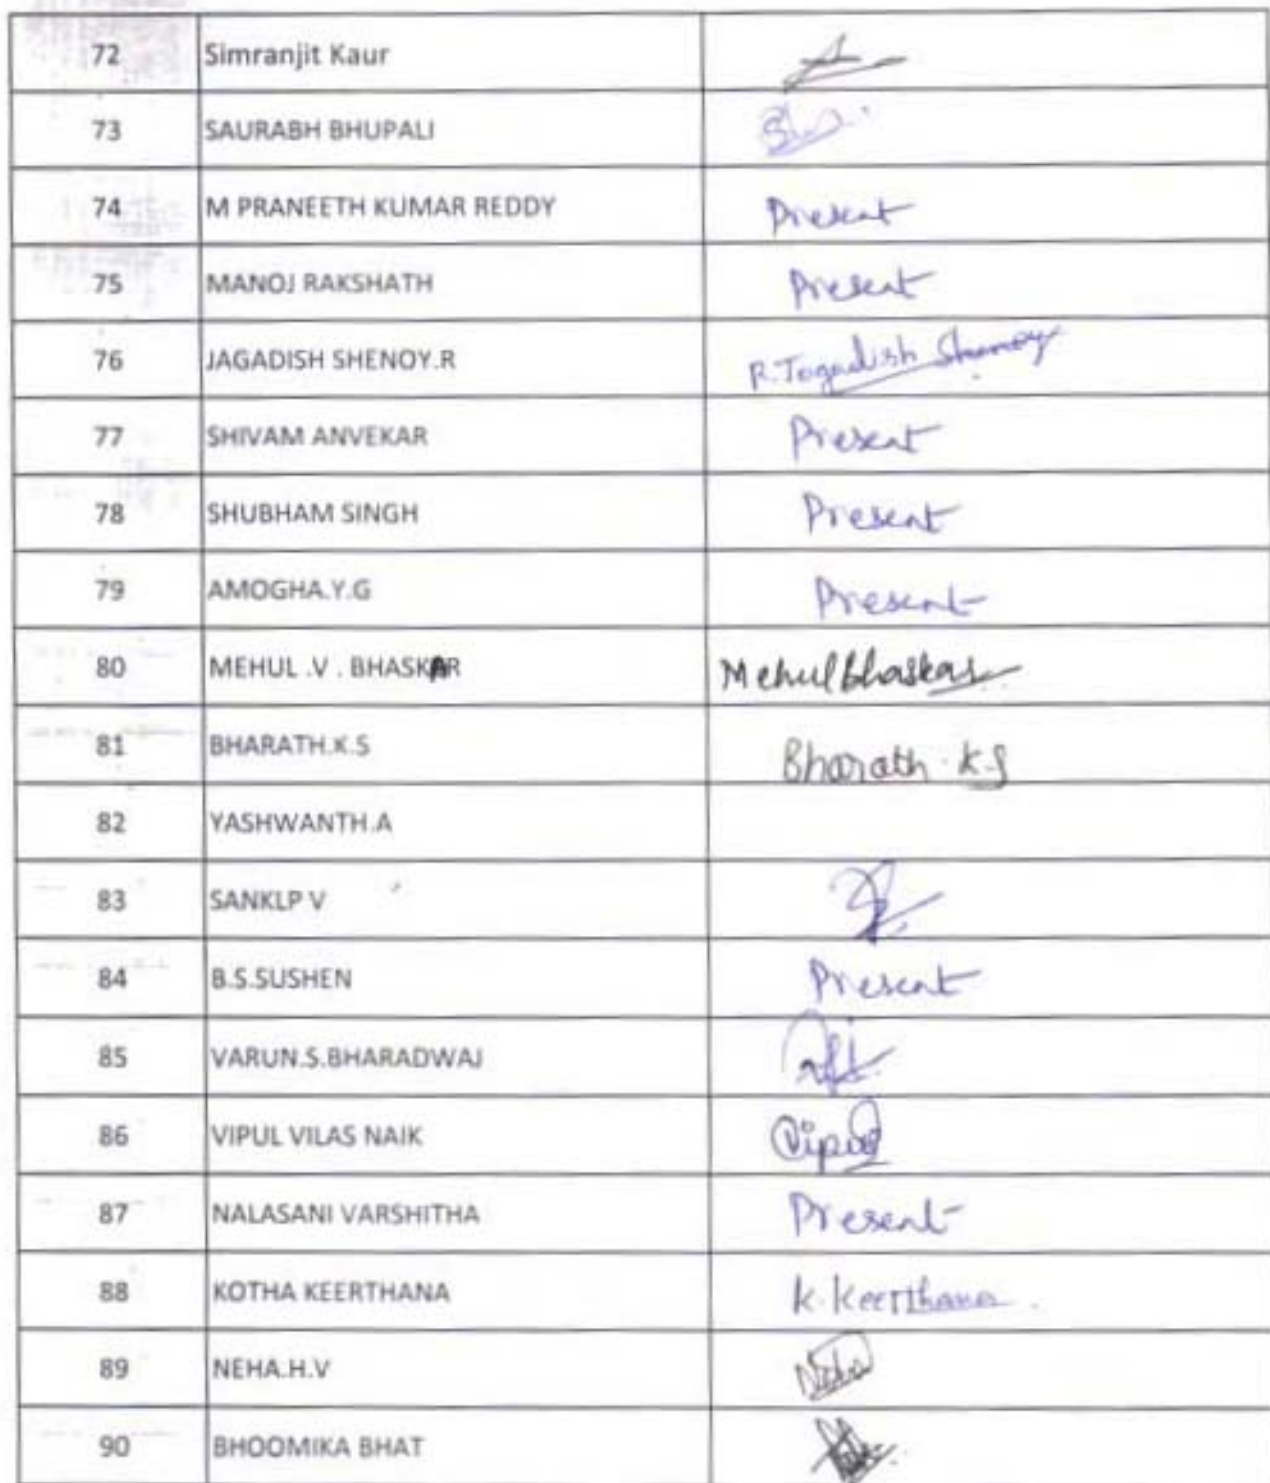 72 Simranjit Kaur
73 SAURABH BHUPALI
74 M PRANEETH KUMAR REDDY Present
75 MANOJ RAKSHATH Present
76 JAGADISH SHENOY.R R.Jagadish Shenoy
77 SHIVAM ANVEKAR Present
78 SHUBHAM SINGH Present
79 AMOGHA.Y.G Present
80 MEHUL .V . BHASKAR Mehul Bhaskar
81 BHARATH.K.S Bharath.K.S
82 YASHWANTH.A
83 SANKLP V
84 B.S.SUSHEN Present
85 VARUN.S.BHARADWAJ
86 VIPUL VILAS NAIK Vipul
87 NALASANI VARSHITHA Present
88 KOTHA KEERTHANA K.Keerthana.
89 NEHA.H.V Neha
90 BHOOMIKA BHAT